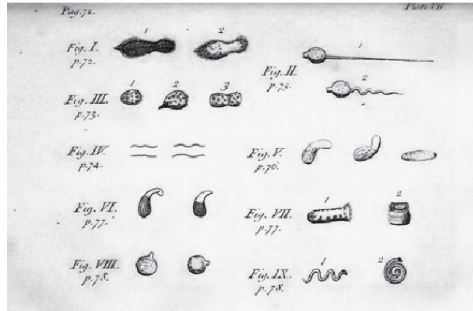 Pag. 72.
Fig. I.
p. 72.
1
2
Fig. II.
p. 73.
1
2
Fig. III.
p. 73.
1
2
3
Fig. IV.
p. 74.
Fig. V.
p. 76.
Fig. VI.
p. 77.
Fig. VII.
p. 77.
1
2
Fig. VIII.
p. 78.
Fig. IX.
p. 78.
1
2